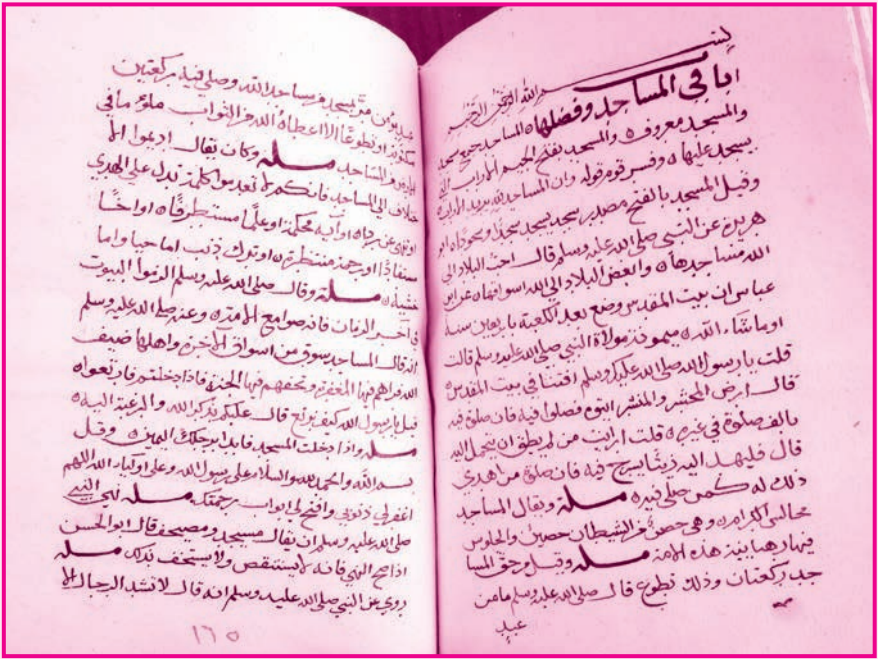 بسم الله الرحمن الرحيم
باب في المساجد وفضلها ه المساجد جمع مسجد
والمسجد معروف ه والمسجد بفتح الجيم الاراب التي
يسجد عليها ه وفسر قوم قوله وان المساجد لله يريد
وقيل المسجد بالفتح مصدر سجد يسجد سجدا وسجودا ه ابو
هريرة عن النبي صلى الله عليه وسلم قال احب البلاد الى
الله مساجدها ه وابغض البلاد الى الله اسواقها ه عن ابن
عباس ان بيت المقدس وضع بعد الكعبة باربعين سنة
او ما شاء الله ه ميمونة مولاة النبي صلى الله عليه وسلم قالت
قلت يا رسول الله صلى الله عليك وسلم افتنا في بيت المقدس ه
قال ارض المحشر والمنشر ايتوه فصلوا فيه فان صلوة فيه
بالف صلوة في غيره ه قلت ارايت من لم يطق ان يتحمل اليه
قال فليهد اليه زيتا يسرج فيه فان صلوة من اهدي
ذلك له كمن صلى فيه ه مسلة ويقال المساجد
مجالس الكرام ه وهي حصن من الشيطان حصين والجلوس
فيها رهبانية هذه الامة ه مسلة وقيل وحق المسا
جد ركعتان وذلك تطوع قال صلى الله عليه وسلم ما من
عبد
من مساجد الله وصلى فيه ركعتين
او تطوعا الا اعطاه الله من الثواب ملؤ ما في
المساجد ه مسلة وكان يقال اديموا الا
ختلاف الى المساجد فانكم لا تعدموا كلمة تدل على الهدي
او اية محكمة او علما مستطرفا ه او اخا
مستفادا او رحمة منتظرة ه او ترك ذنب اما حيا واما
خشية ه مسلة وقال صلى الله عليه وسلم الزموا البيوت
في آخر الزمان فانه صوامع الامة ه وعنه صلى الله عليه وسلم
انه قال المساجد سوق من اسواق الآخرة واهلها ضيف
الله قراهم فيها المغفرة وتحفهم فيها الجنة فاذا دخلتم فارتعوا ه
قيل يا رسول الله كيف نرتع قال عليكم بذكر الله والرغبة اليه ه
مسلة واذا دخلت المسجد فابدا برجلك اليمين ه وقل
بسم الله والحمد لله والسلام على رسول الله وعلى اولياء الله اللهم
اغفر لي ذنوبي وافتح لي ابواب رحمتك ه مسلة نهى النبي
صلى الله عليه وسلم ان يقال مسيجد ومصيحف قال ابو الحسن
اذا صح النهي فانه لا يستنقص ولا يستخف بذلك مسلة
روي عن النبي صلى الله عليه وسلم انه قال لا تشد الرحال الا
١٦٥